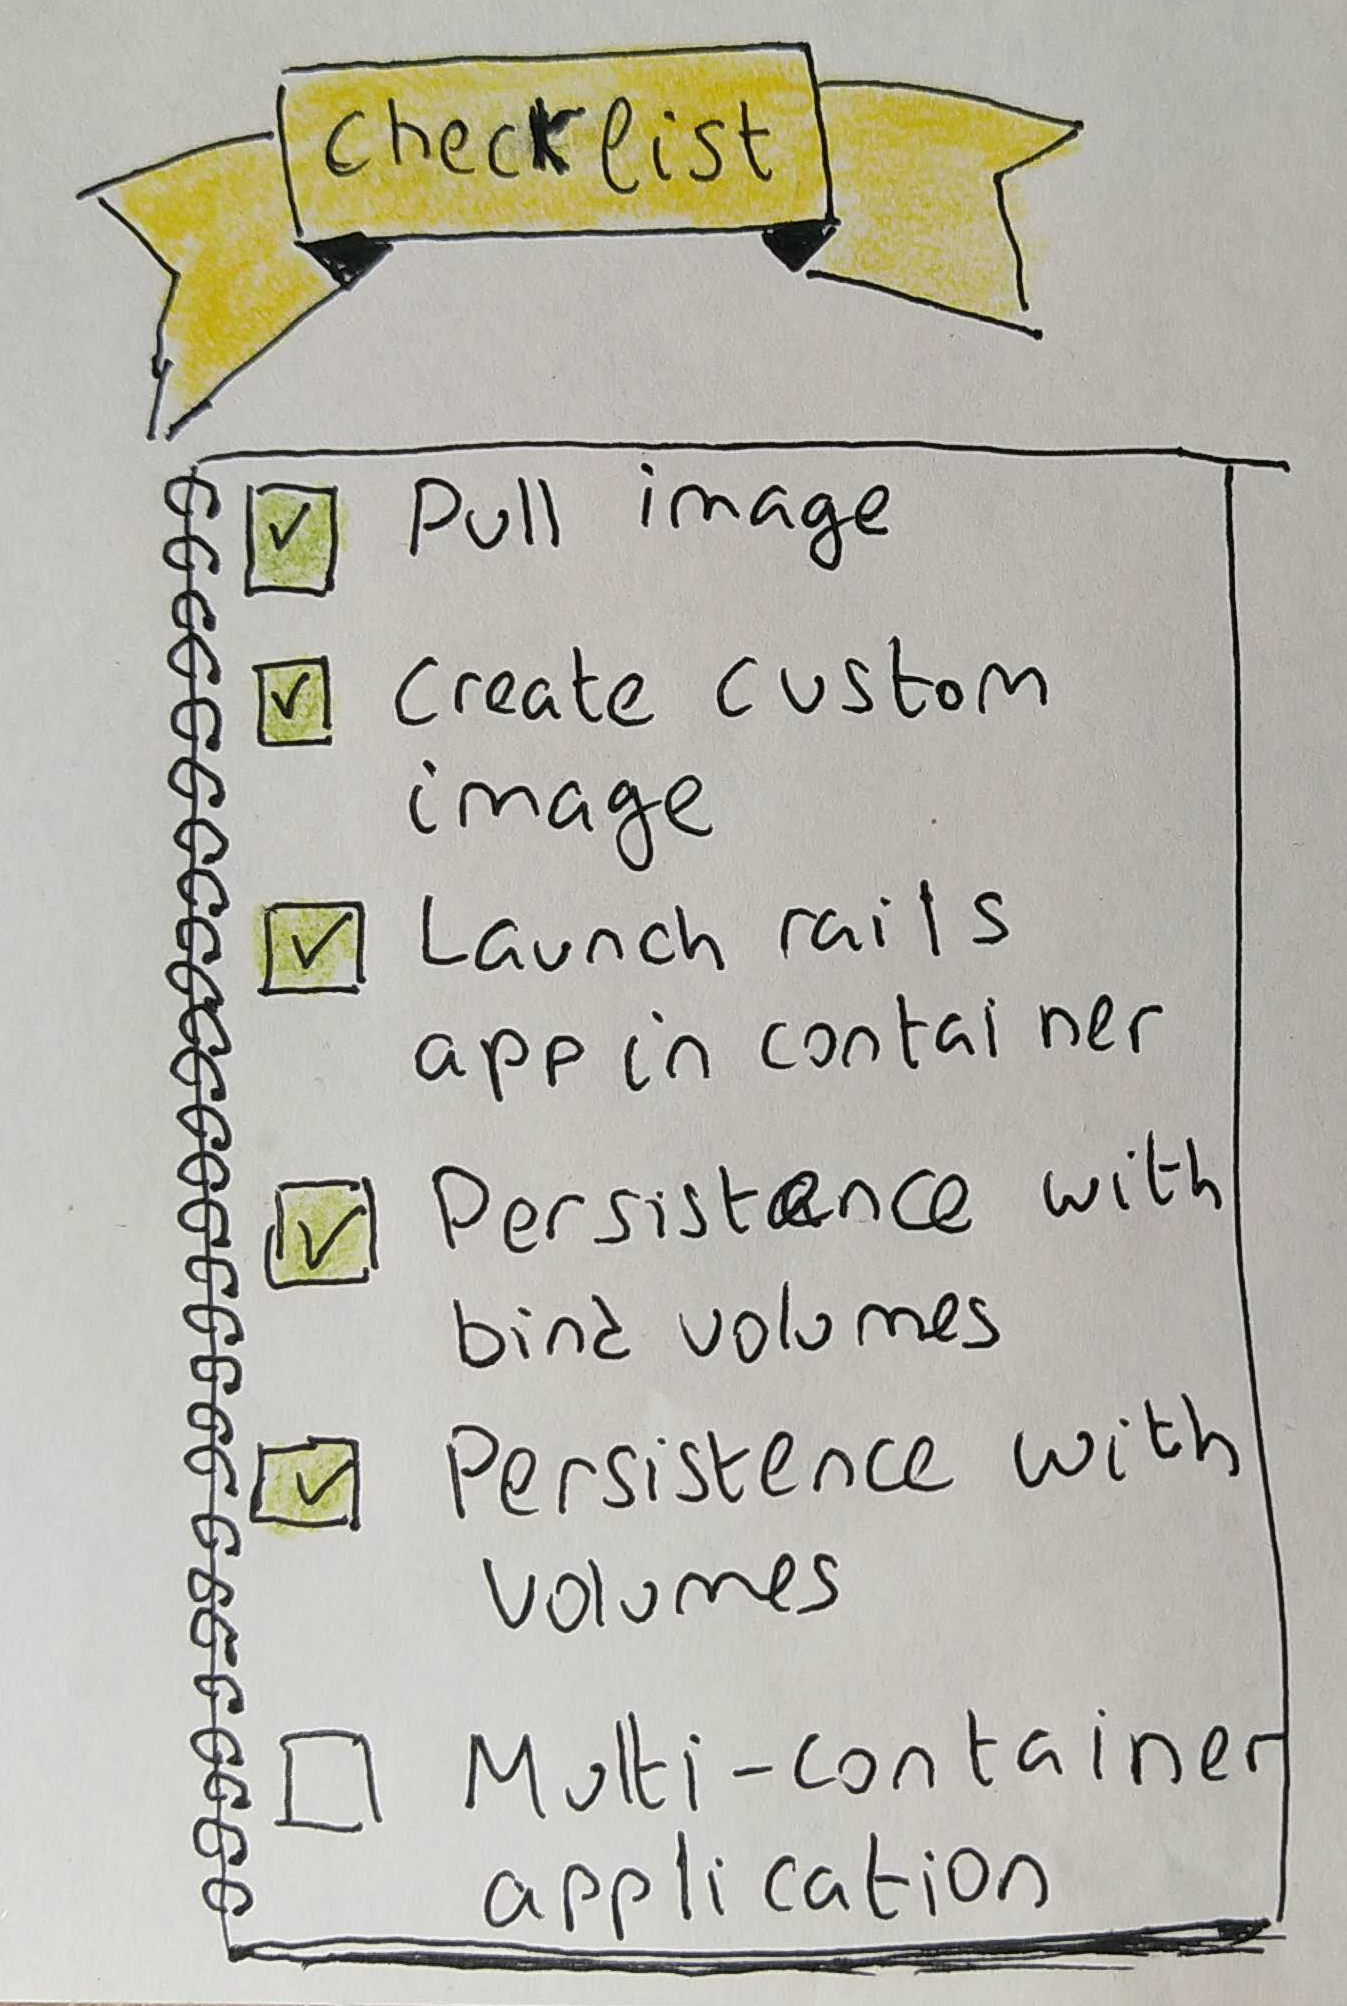 checklist
Pull image
Create custom
image
Launch rails
app in container
Persistence with
bind volumes
Persistence with
volumes
Multi-container
application